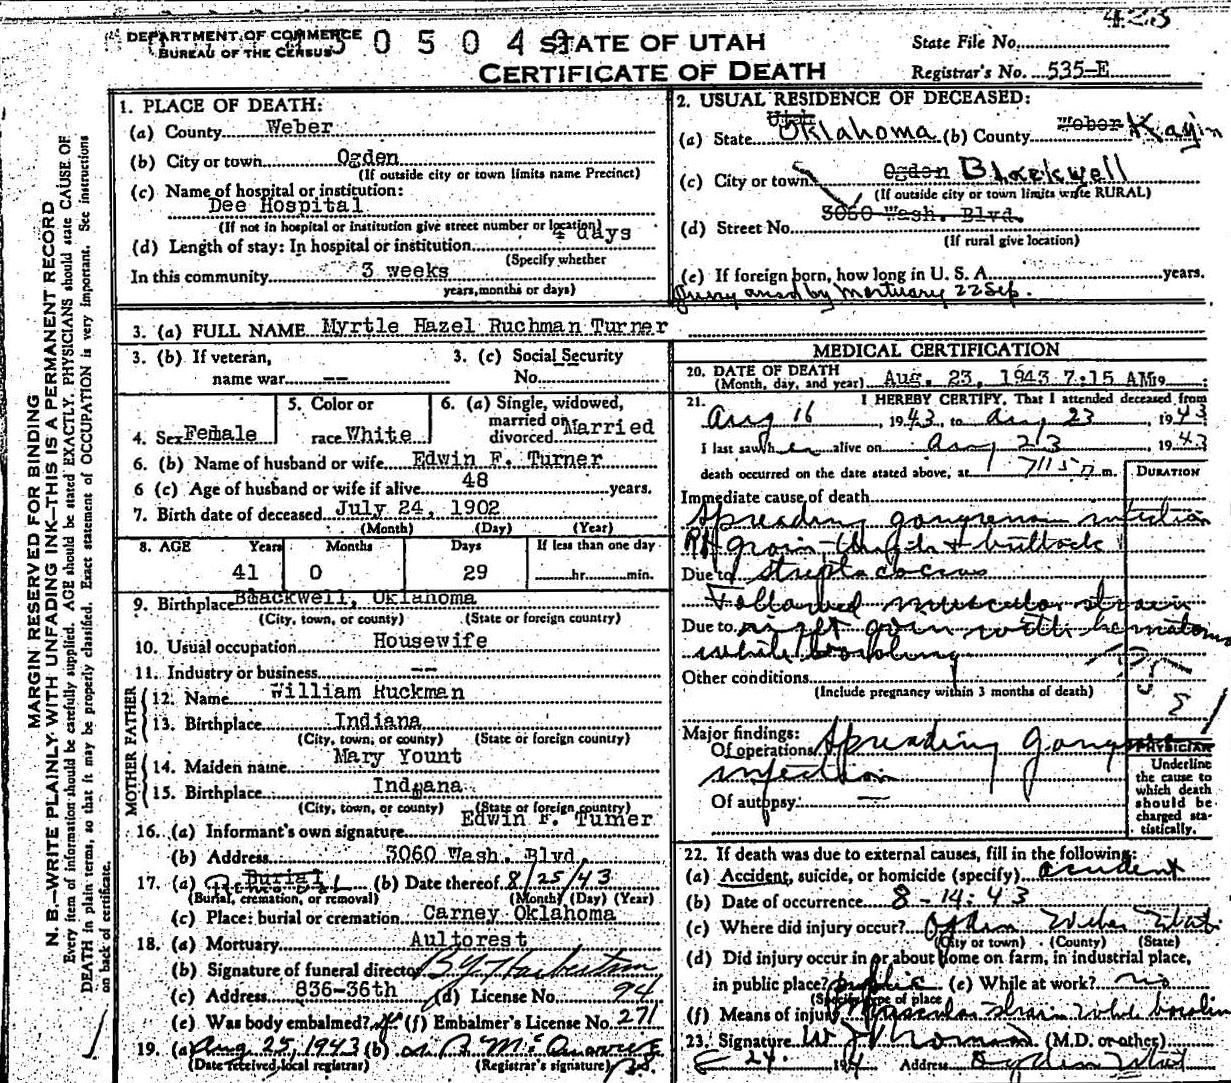 423
DEPARTMENT OF COMMERCE
BUREAU OF THE CENSUS
STATE OF UTAH
CERTIFICATE OF DEATH
State File No.
Registrar's No. 535-E
MARGIN RESERVED FOR BINDING
N. B.—WRITE PLAINLY WITH UNFADING INK—THIS IS A PERMANENT RECORD
Every item of information should be carefully supplied. AGE should be stated EXACTLY. PHYSICIANS should state CAUSE OF
DEATH in plain terms, so that it may be properly classified. Exact statement of OCCUPATION is very important. See instructions
on back of certificate.
1. PLACE OF DEATH:
(a) County Weber
(b) City or town Ogden
(If outside city or town limits name Precinct)
(c) Name of hospital or institution:
Dee Hospital
(If not in hospital or institution give street number or location)
(d) Length of stay: In hospital or institution days
(Specify whether
In this community 3 weeks
years, months or days)
2. USUAL RESIDENCE OF DECEASED:
(a) State Utah Oklahoma (b) County Weber
(c) City or town Ogden Blackwell
(If outside city or town limits write RURAL)
(d) Street No. 3060 Wash. Blvd.
(If rural give location)
(e) If foreign born, how long in U. S. A. years.
by mortuary 22 Sep.
3. (a) FULL NAME Myrtle Hazel Ruchman Turner
3. (b) If veteran, name war --
3. (c) Social Security No. --
4. Sex Female
5. Color or race White
6. (a) Single, widowed, married or divorced Married
6. (b) Name of husband or wife Edwin F. Turner
6 (c) Age of husband or wife if alive 48 years.
7. Birth date of deceased July 24, 1902
(Month) (Day) (Year)
8. AGE Years Months Days If less than one day
41 0 29 hr. min.
9. Birthplace Blackwell, Oklahoma
(City, town, or county) (State or foreign country)
10. Usual occupation Housewife
11. Industry or business --
FATHER
12. Name William Ruckman
13. Birthplace Indiana
(City, town, or county) (State or foreign country)
MOTHER
14. Maiden name Mary Yount
15. Birthplace Indiana
(City, town, or county) (State or foreign country)
16. (a) Informant's own signature Edwin F. Turner
(b) Address 3060 Wash. Blvd.
17. (a) Burial (b) Date thereof 8/25/43
(Burial, cremation, or removal) (Month) (Day) (Year)
(c) Place: burial or cremation Carney Oklahoma
18. (a) Mortuary Aultorest
(b) Signature of funeral director
(c) Address 836-36th (d) License No. 94
(e) Was body embalmed? (f) Embalmer's License No. 271
19. (a) Aug 25, 1943 (b)
(Date received local registrar) (Registrar's signature)
MEDICAL CERTIFICATION
20. DATE OF DEATH
(Month, day, and year) Aug. 23, 1943 7:15 AM 19
21. I HEREBY CERTIFY, That I attended deceased from
Aug 16, 1943, to Aug 23, 1943
I last saw her alive on Aug 23 1943
death occurred on the date stated above, at 7:15 m.
DURATION
Immediate cause of death
Spreading gangrenous infection
Rt groin thigh & buttock
Due to streptococcus
Followed muscular strain
Due to right groin with hematoma
while bowling
Other conditions
(Include pregnancy within 3 months of death)
Major findings:
Of operations Spreading gangrenous
infection
Of autopsy —
PHYSICIAN
Underline
the cause to
which death
should be
charged sta-
tistically.
22. If death was due to external causes, fill in the following:
(a) Accident, suicide, or homicide (specify) accident
(b) Date of occurrence 8-14-43
(c) Where did injury occur? Ogden Weber Utah
(City or town) (County) (State)
(d) Did injury occur in or about home on farm, in industrial place,
in public place? public (e) While at work? no
(Specify type of place
(f) Means of injury Muscular strain while bowling
23. Signature (M.D. or other)
24. 194 Address Ogden Utah